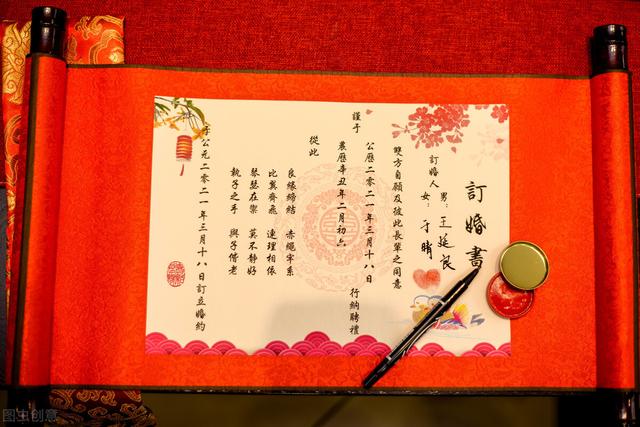 訂婚書
訂婚人 男：王延良
女：于晴
雙方自願及彼此長輩之同意
謹于
公曆二零二一年三月十八日 行納聘禮
農曆辛丑年二月初六
從此
良緣締結 赤繩牢系
比翼齊飛 連理相依
琴瑟在禦 莫不靜好
執子之手 與子偕老
于公元二零二一年三月十八日訂立婚約
图虫创意